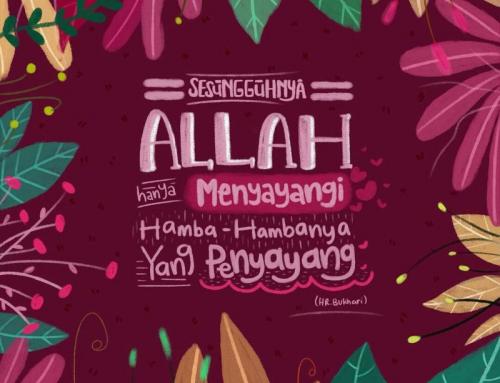 SESUNGGUHNYA
ALLAH
hanya Menyayangi
Hamba-Hambanya
Yang Penyayang
(HR. Bukhari)